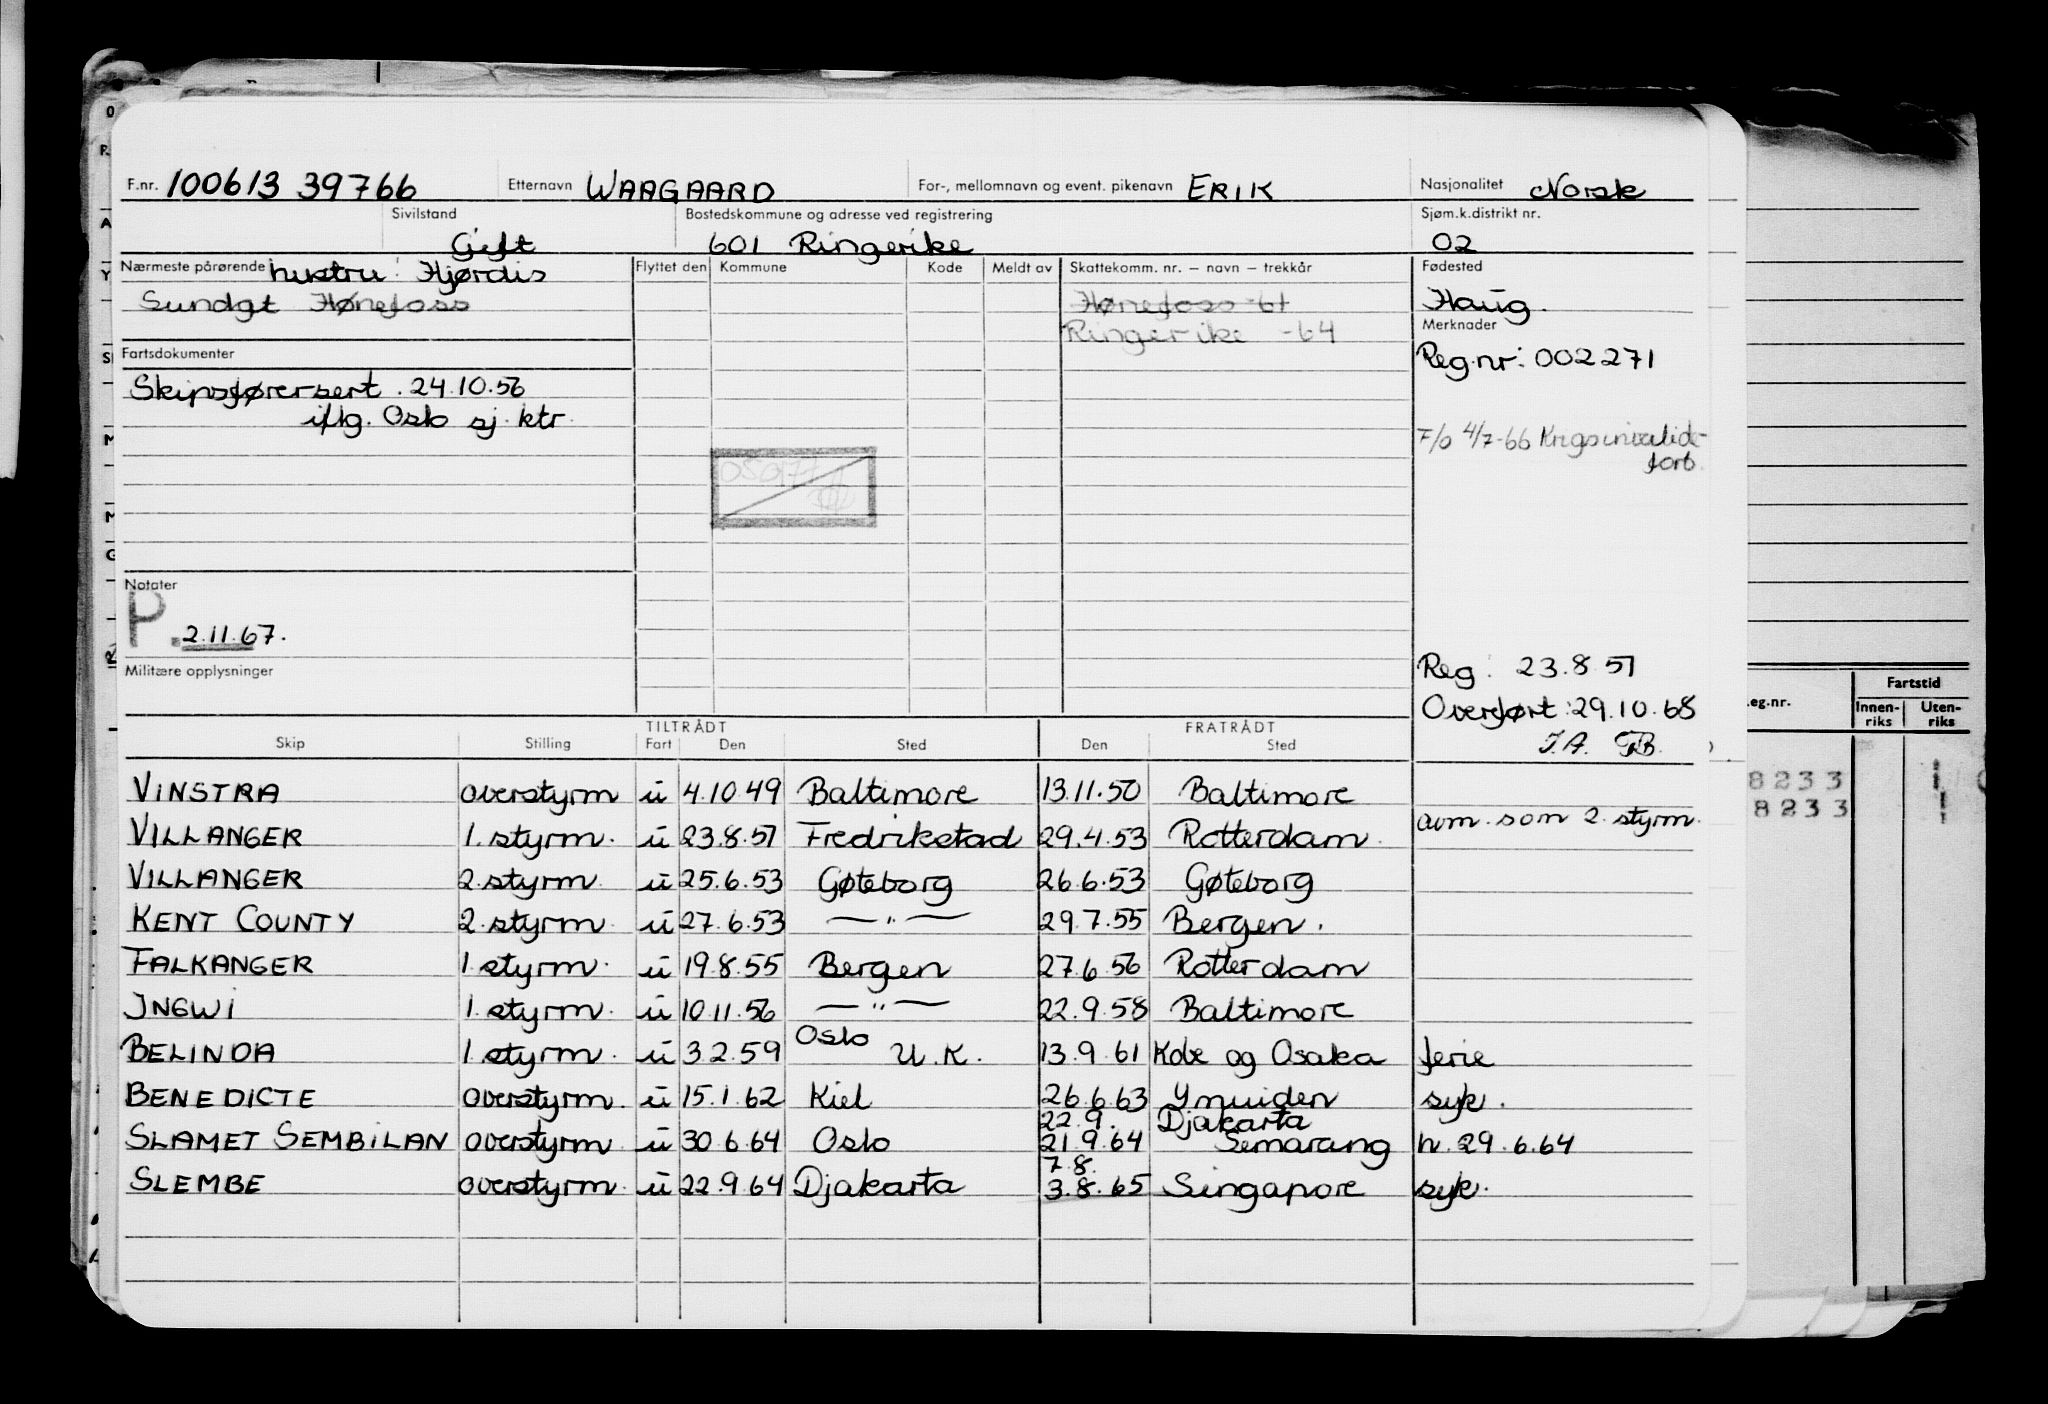 F.nr. 100613 39766 Etternavn WAAGAARD For-, mellomnavn og event. pikenavn ERIK Nasjonalitet Norsk
Sivilstand Gift Bostedskommune og adresse ved registrering 601 Ringerike Sjøm.k.distrikt nr. 02
Nærmeste pårørende hustru: Hjørdis Flyttet den Kommune Kode Meldt av Skattekomm. nr. – navn – trekkår Fødested
Sundgt Hønefoss Hønefoss -61 Haug.
Ringerike -64 Merknader
Fartsdokumenter Reg.nr: 002271
Skipsførersert. 24.10.56
iflg. Oslo sj. ktr.
F/o 4/7-66 Krigsinvalide-
forb.
Notater
P. 2.11.67.
Militære opplysninger
Reg: 23.8.51
Overført: 29.10.68
TILTRÅDT FRATRÅDT
Skip Stilling Fart Den Sted Den Sted
VINSTRA overstyrm u 4.10.49 Baltimore 13.11.50 Baltimore
VILLANGER 1. styrm. u 23.8.51 Fredrikstad 29.4.53 Rotterdam. avm. som 2. styrm.
VILLANGER 2. styrm. u 25.6.53 Gøteborg 26.6.53 Gøteborg
KENT COUNTY 2. styrm. u 27.6.53 —"— 29.7.55 Bergen.
FALKANGER 1. styrm. u 19.8.55 Bergen 27.6.56 Rotterdam
INGWI 1. styrm. u 10.11.56 —"— 22.9.58 Baltimore
BELINDA 1. styrm. u 3.2.59 Oslo U.K. 13.9.61 Kobe og Osaka ferie
BENEDICTE overstyrm. u 15.1.62 Kiel 26.6.63 Ymuiden syk.
22.9. Djakarta
SLAMET SEMBILAN overstyrm u 30.6.64 Oslo 21.9.64 Semarang h. 29.6.64
7.8.
SLEMBE overstyrm. u 22.9.64 Djakarta 3.8.65 Singapore syk.
eg.nr. Fartstid
Innen-riks Uten-riks
8233
8233